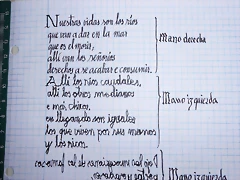 Nuestras vidas son los ríos
que van a dar en la mar
que es el morir,
allí van los señoríos
derechos a se acabar e consumir.
Mano derecha
Allí los ríos caudales,
allí los otros medianos
e más chicos,
en llegando son iguales
los que viven por sus manos
y los ricos.
Mano izquierda
Mano izquierda